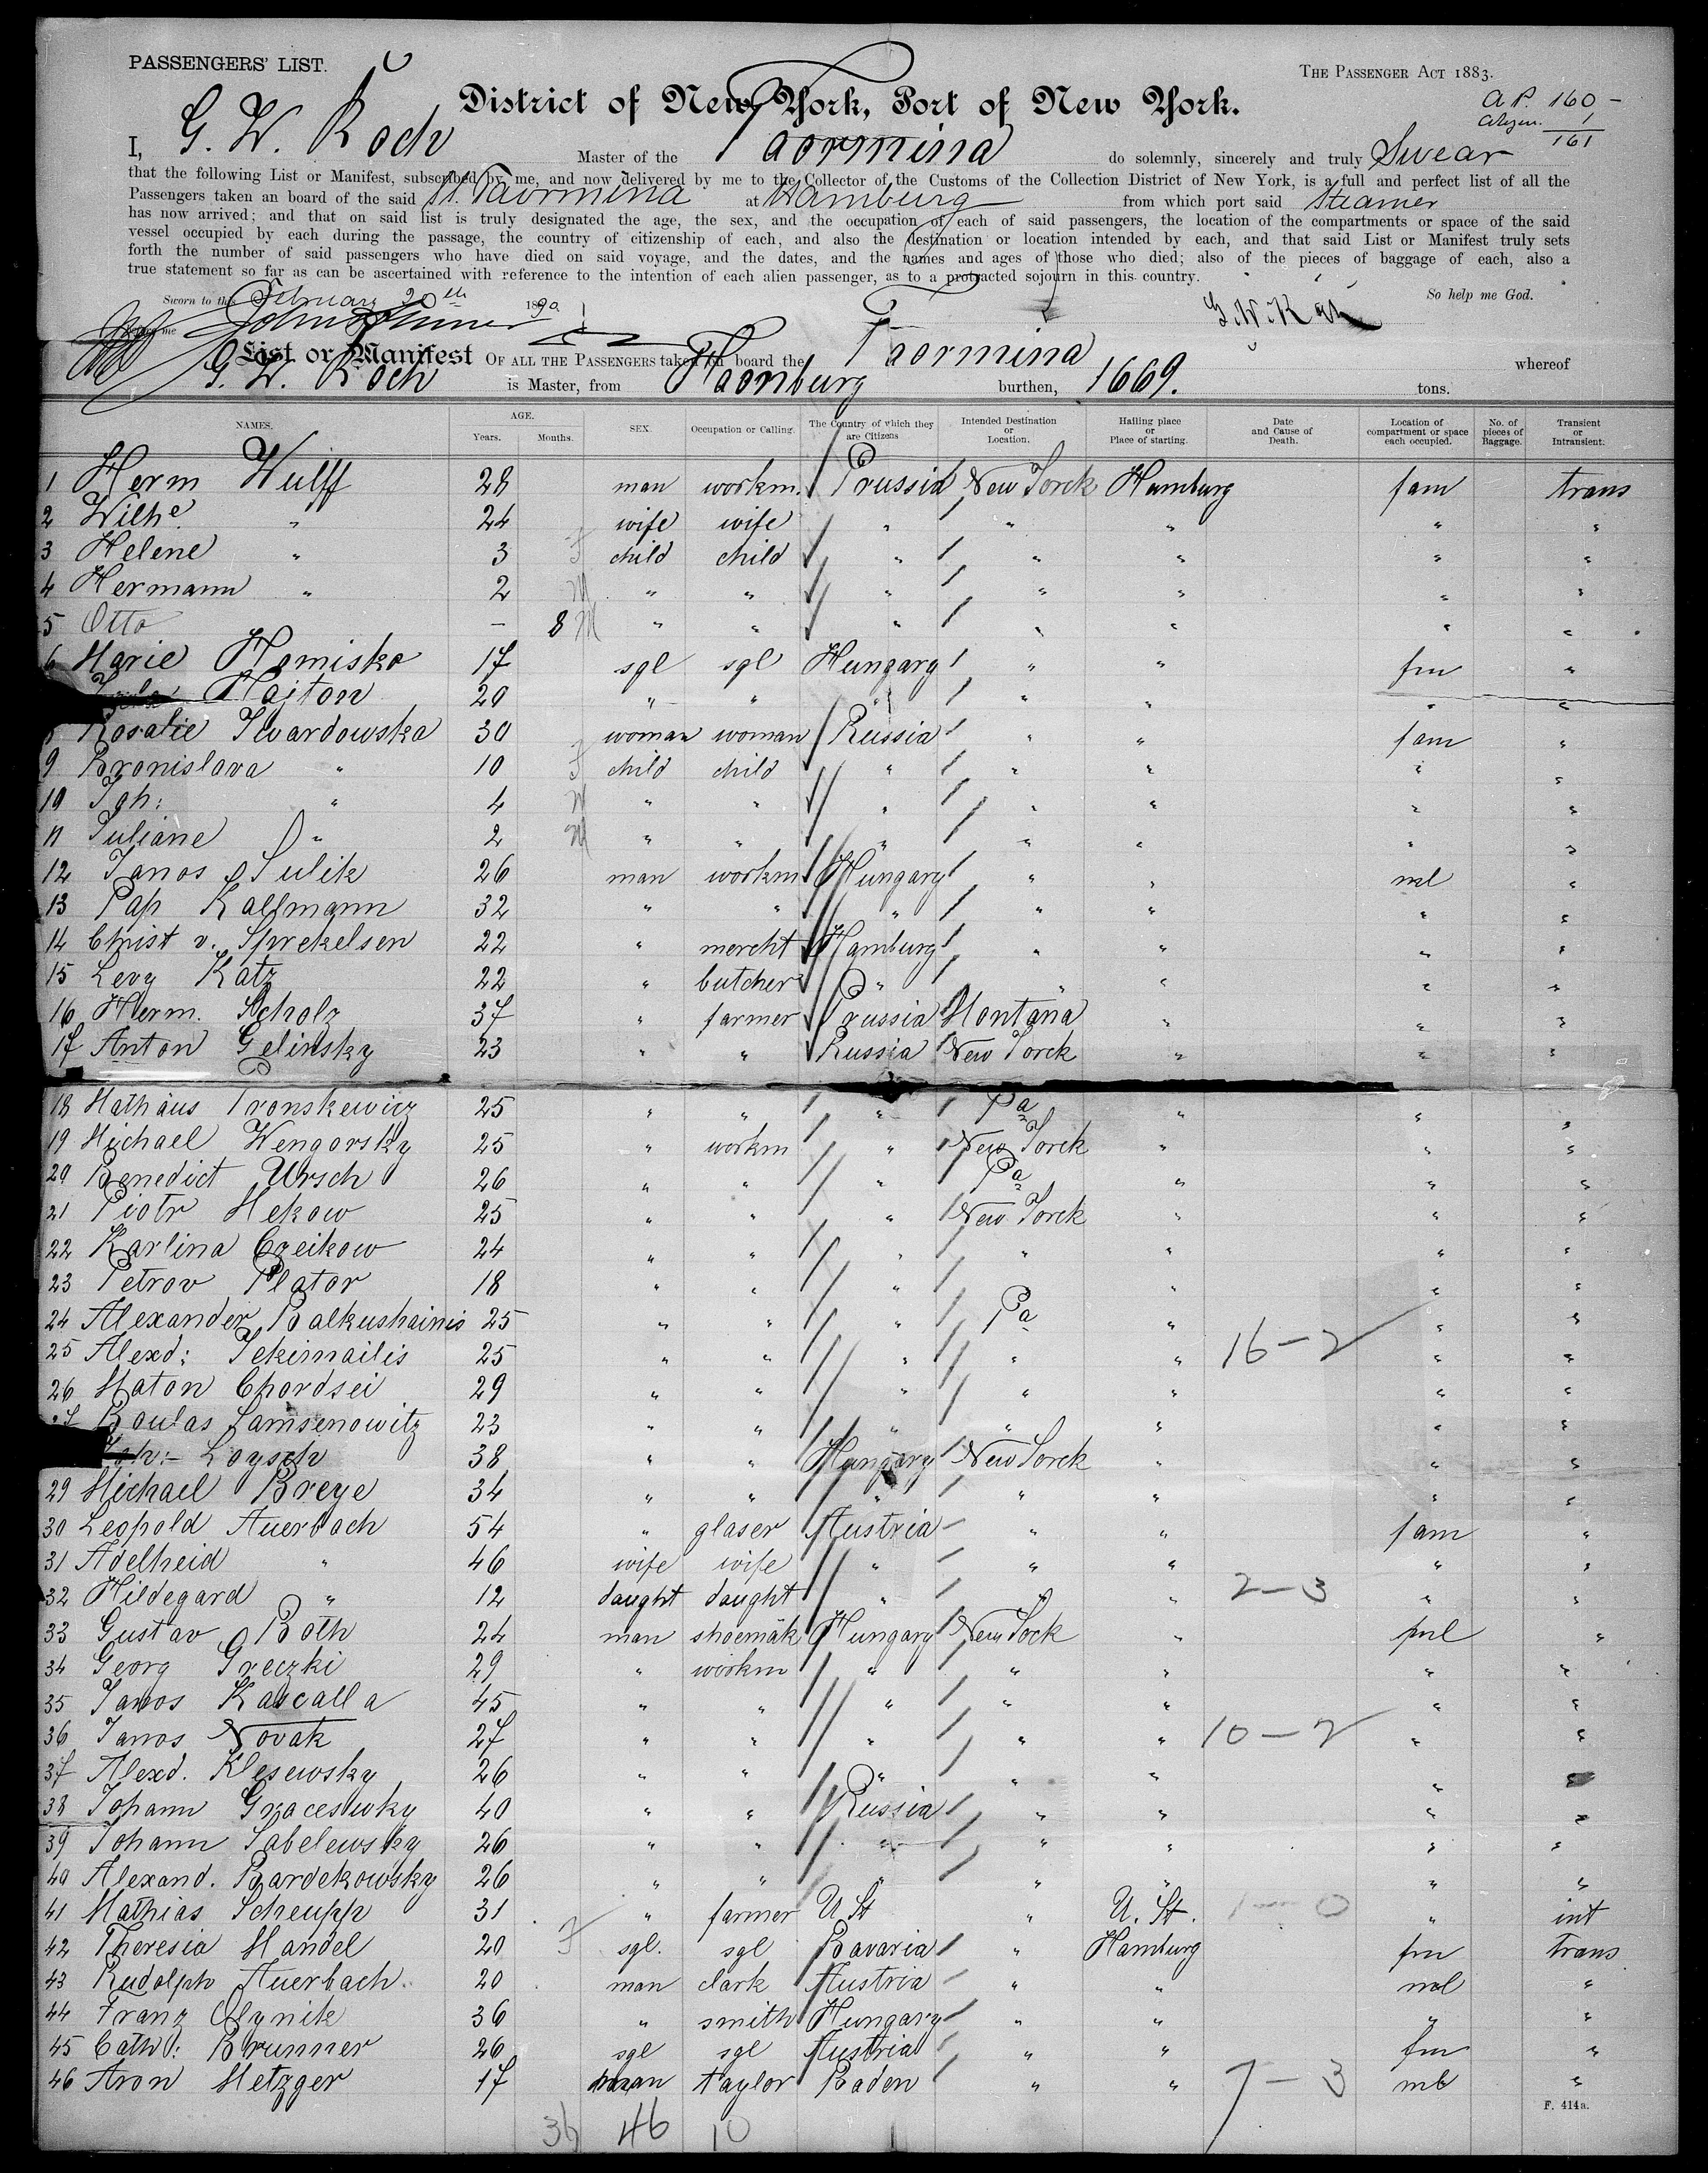 PASSENGERS' LIST.
THE PASSENGER ACT 1883.
District of New York, Port of New York.
A.P. 160 –
Citizen. 1
161
I, G. W. Koch Master of the Taormina do solemnly, sincerely and truly Swear
that the following List or Manifest, subscribed by me, and now delivered by me to the Collector of the Customs of the Collection District of New York, is a full and perfect list of all the
Passengers taken an board of the said St. Taormina at Hamburg from which port said Steamer
has now arrived; and that on said list is truly designated the age, the sex, and the occupation of each of said passengers, the location of the compartments or space of the said
vessel occupied by each during the passage, the country of citizenship of each, and also the destination or location intended by each, and that said List or Manifest truly sets
forth the number of said passengers who have died on said voyage, and the dates, and the names and ages of those who died; also of the pieces of baggage of each, also a
true statement so far as can be ascertained with reference to the intention of each alien passenger, as to a protracted sojourn in this country.
Sworn to this February 20th 1890 So help me God.
me G. W. Koch
List or Manifest OF ALL THE PASSENGERS taken on board the Taormina whereof
G. W. Koch is Master, from Hamburg burthen, 1669. tons.
NAMES. AGE. Years. Months. SEX. Occupation or Calling. The Country of which they are Citizens Intended Destination or Location. Hailing place or Place of starting. Date and Cause of Death. Location of compartment or space each occupied. No. of pieces of Baggage. Transient or Intransient.
1 Herm Wulff 28 man workm. Prussia New Yorck Hamburg fam trans
2 Wilhe " 24 wife wife " " " " "
3 Helene " 3 F child child " " " " "
4 Hermann " 2 M " " " " " " "
5 Otto – 8 M " " " " " " "
6 Marie Homisko 17 sgl sgl Hungary " " fm "
Hajton 20 " " " " " " "
Rosalie Twardowska 30 woman woman Russia " " fam "
9 Bronislava " 10 F child child " " " " "
10 Joh: " 4 M " " " " " " "
11 Juliane " 2 M " " " " " " "
12 Janos Sulik 26 man workm Hungary " " ml "
13 Pap Kallmann 32 " " " " " " "
14 Christ v. Sprekelsen 22 " mercht Hamburg " " " "
15 Levy Katz 22 " butcher " " " " "
16 Herm. Scholz 37 " farmer Prussia Montana " " "
17 Anton Gelinsky 23 " " Russia New Yorck " " "
18 Mathäus Pronskewicz 25 " " " Pa " " "
19 Michael Wengorsky 25 " workm " New Yorck " " "
20 Benedict Ursch 26 " " " Pa " " "
21 Piotr Mekow 25 " " " New Yorck " " "
22 Karlina Czeikow 24 " " " " " " "
23 Petrov Plator 18 " " " " " "
24 Alexander Balkushainis 25 " " " Pa " " "
25 Alexd: Jekimailis 25 " " " " " 16–2 " "
26 Maton Chordsei 29 " " " " " " "
27 Boulas Samsenowitz 23 " " " " " " "
Joh: Loysch 38 " " Hungary New Yorck " " "
29 Michael Breye 34 " " " " " " "
30 Leopold Auerbach 54 " glaser Austria " " fam "
31 Adelheid " 46 wife wife " " " " "
32 Hildegard " 12 daught daught " " " 2–3 " "
33 Gustav Roth 24 man shoemäk Hungary New Yock " fml "
34 Georg Greczki 29 " workm " " " " "
35 Janos Kascalla 45 " " " " " " "
36 Janos Novak 27 " " " " " 10–2 " "
37 Alexd. Klesewsky 26 " " " " " "
38 Johann Graceswky 40 " " Russia " " " "
39 Johann Sabelewsky 26 " " " " " " "
40 Alexand. Bardekowsky 26 " " " " " " "
41 Mathias Scheupp 31 " farmer U St " U. St. 1–0 " int
42 Theresia Mandel 20 F sgl. sgl Bavaria " Hamburg fm trans
43 Rudolph Auerbach 20 man clark Austria " " ml "
44 Franz Olynik 36 " smith Hungary " " " "
45 Cath: Brunner 26 sgl sgl Austria " " fm "
46 Aron Metzger 17 man taylor Baden " " 7–3 ml "
F. 414a.
36 46 10